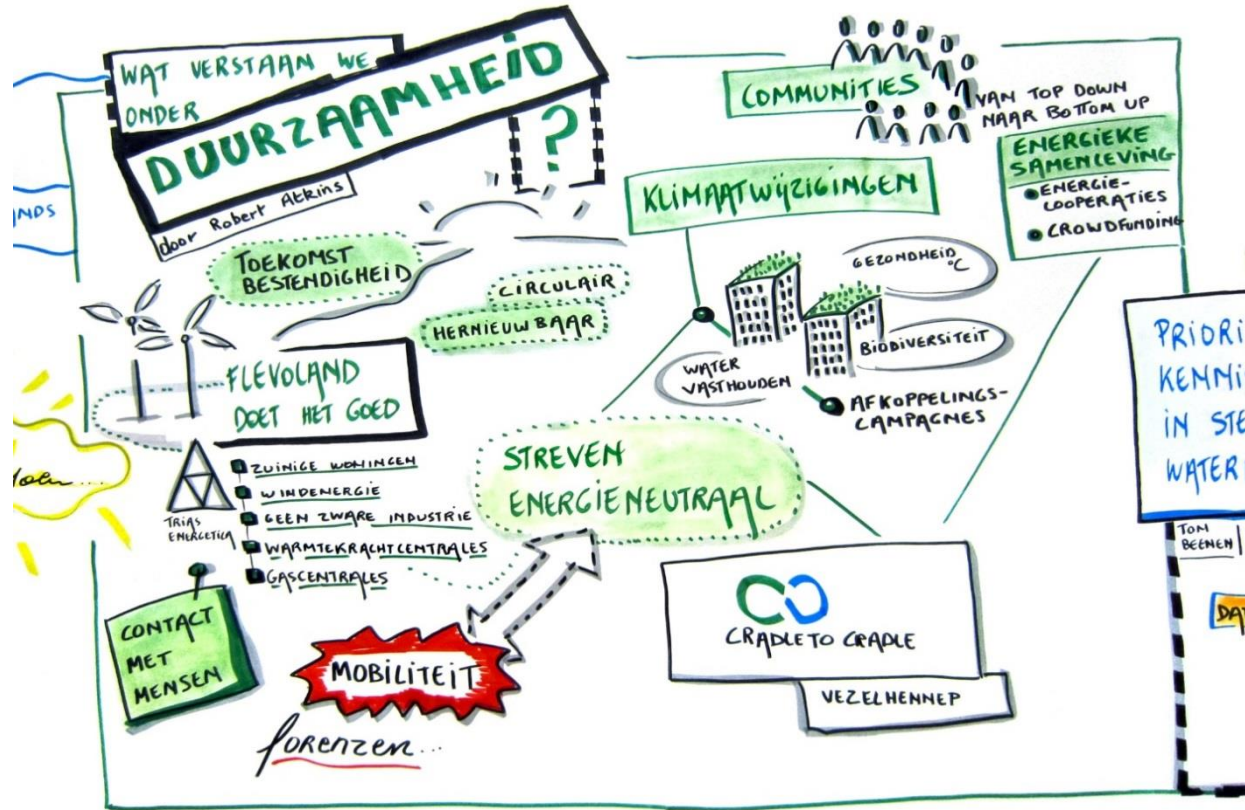 WAT VERSTAAN WE
ONDER
DUURZAAMHEID
?
door Robert Atkins
TOEKOMST
BESTENDIGHEID
CIRCULAIR
HERNIEUWBAAR
FLEVOLAND
DOET HET GOED
TRIAS
ENERGETICA
ZUINIGE WONINGEN
WINDENERGIE
GEEN ZWARE INDUSTRIE
WARMTEKRACHTCENTRALES
GASCENTRALES
CONTACT
MET
MENSEN
MOBILITEIT
forenzen...
STREVEN
ENERGIENEUTRAAL
COMMUNITIES
VAN TOP DOWN
NAAR BOTTOM UP
ENERGIEKE
SAMENLEVING
ENERGIE-
COOPERATIES
CROWDFUNDING
KLIMAATWIJZIGINGEN
GEZONDHEID
°C
BIODIVERSITEIT
WATER
VASTHOUDEN
AFKOPPELINGS-
CAMPAGNES
CRADLE TO CRADLE
VEZELHENNEP
PRIORI
KENNI
IN STE
WATER
TOM
BEENEN
DA